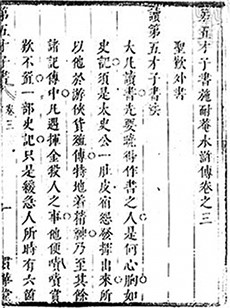 第五才子書施耐菴水滸傳卷之三
聖歎外書
讀第五才子書法
大凡讀書先要曉得作書之人是何心胸如
史記須是太史公一肚皮宿怨發揮出來所
以他於游俠貨殖傳特地着精神乃至其餘
諸記傳中凡遇揮金殺人之事他便嘖嘖賞
歎不置一部史記只是緩急人所時有六箇
第五才子書 卷三 一 貫華堂